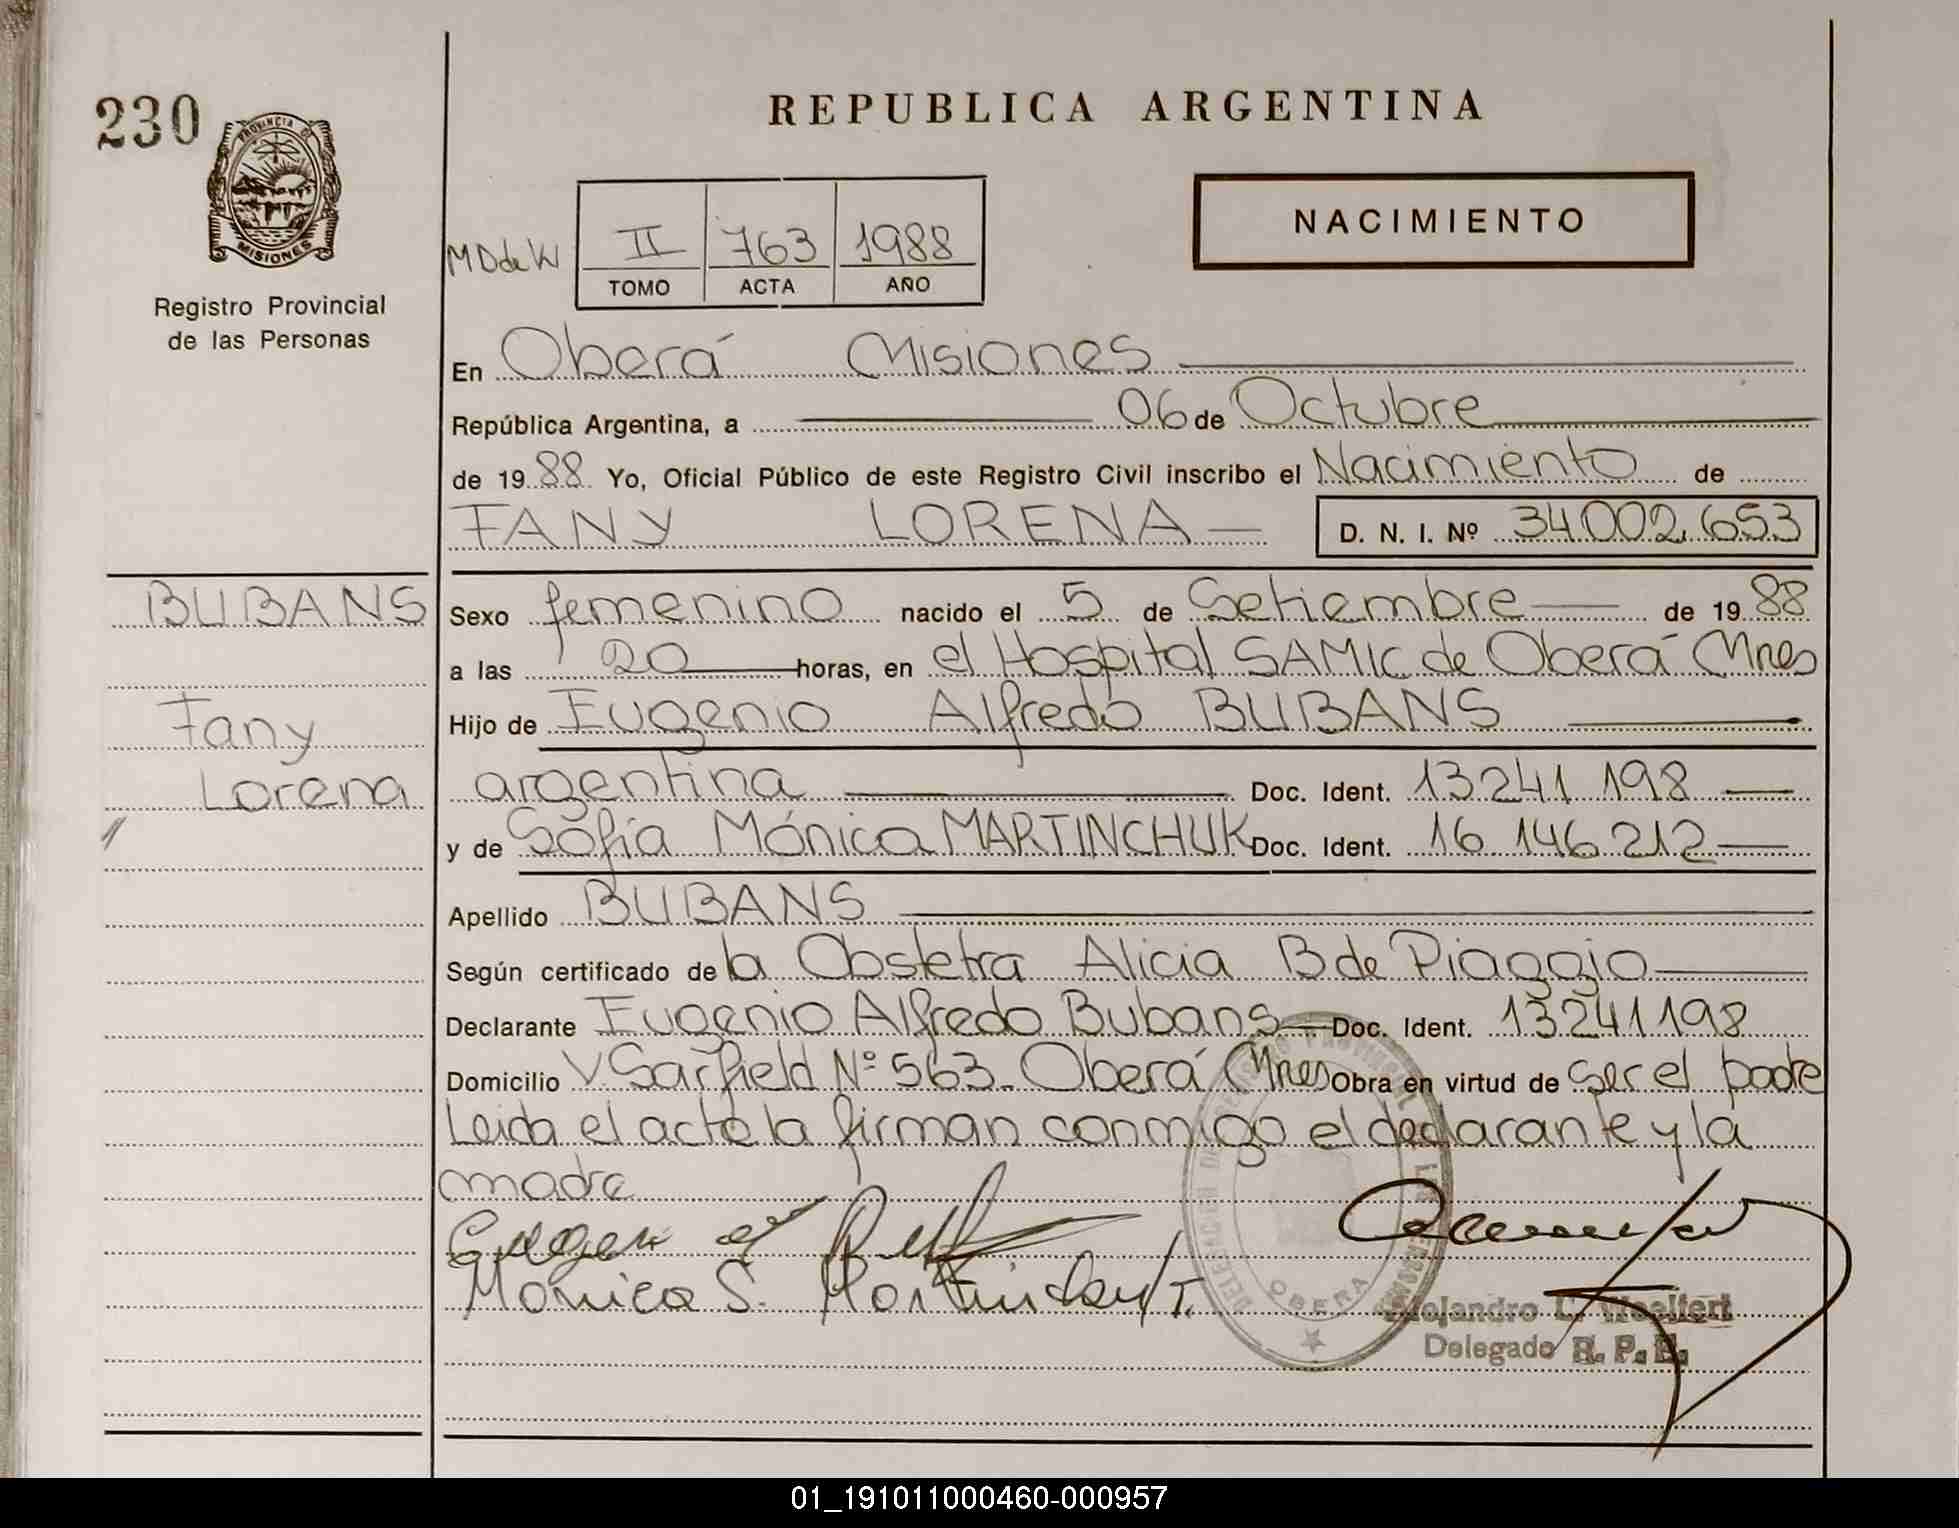 230
PROVINCIA DE
MISIONES
Registro Provincial
de las Personas
REPUBLICA ARGENTINA
NACIMIENTO
MDdeW
II 763 1988
TOMO ACTA AÑO
En Oberá Misiones
República Argentina, a 06 de Octubre
de 1988 Yo, Oficial Público de este Registro Civil inscribo el Nacimiento de
FANY LORENA D. N. I. Nº 34.002.653
BUBANS
Fany
Lorena
Sexo femenino nacido el 5 de Setiembre de 1988
a las 20 horas, en el Hospital SAMIC de Oberá Mnes
Hijo de Eugenio Alfredo BUBANS
argentina Doc. Ident. 13241198
y de Sofía Mónica MARTINCHUK Doc. Ident. 16 146 212
Apellido BUBANS
Según certificado de la Obstetra Alicia B de Piaggio
Declarante Eugenio Alfredo Bubans Doc. Ident. 13241198
Domicilio V Sarfield Nº 563. Oberá Mnes Obra en virtud de ser el padre
Leida el acta la firman conmigo el declarante y la
madre
Monica S.
OBERA
Alejandro L.
Delegado R. P. P.
01_191011000460-000957